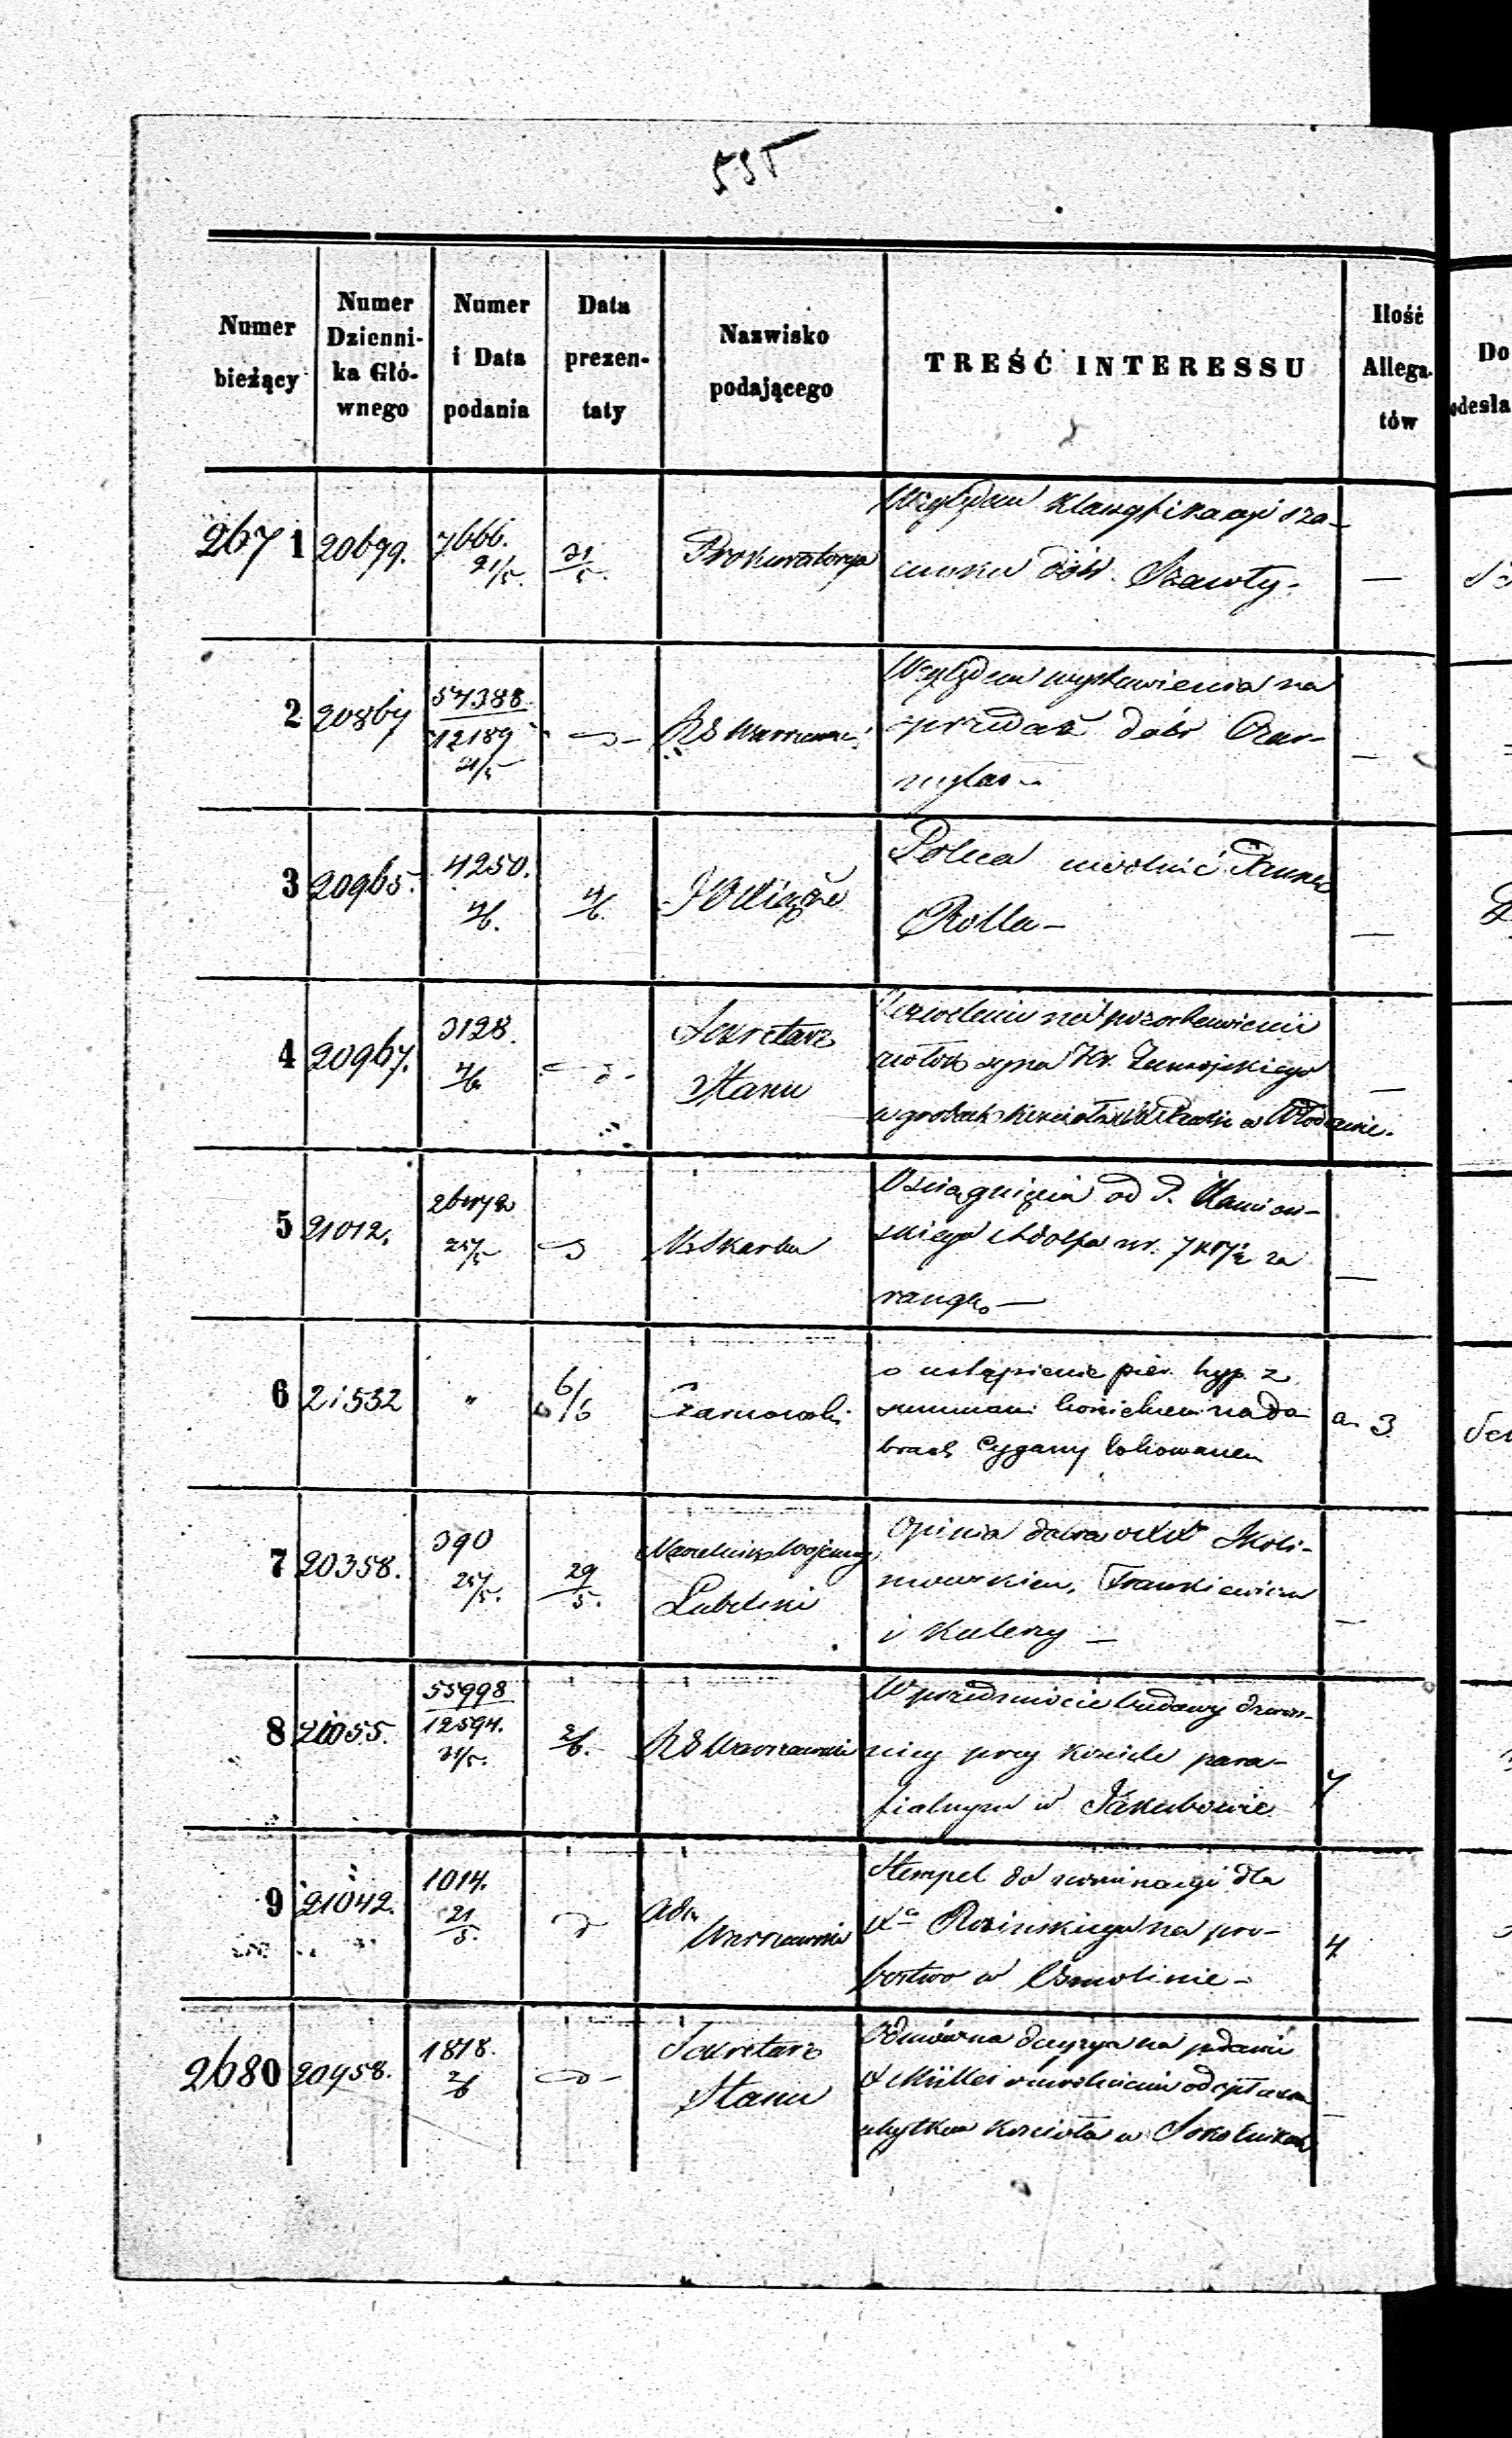 535
Numer
bieżący
Numer
Dzienni-
ka Głó-
wnego
Numer
i Data
podania
Data
prezen-
taty
Nazwisko
podającego
TREŚĆ INTERESSU
Ilość
Allega-
tów
Do
odesła
2671
20699.
7666.
21/5.
31/5.
Prokuratorya
Względem klassyfikacyi sza-
cunku dóbr. Szawły.
—
2
20867
57388.
12189
21/5
RG Warszawski
Względem wystawienia na
sprzedaż dóbr Czar-
nylas —
—
3
20965.
4250.
4/6.
4/6.
Poleca uwolnić
Rolla —
—
4
20967.
3128.
4/6
d -
Sekretarz
Stanu
Zezwolenie na pozostawienie
zwłok syna Hr. Zamojskiego
w grobach kościoła w Włodawie.
—
5
21012.
27/5
KSkarbu
Osiągnięcia od P. Kamion-
skiego Adolfa za
rangę. —
—
6
21532
"
6/6
Czarnowski
o ustąpienie pier. hyp. z
summami kościelnemi na do-
brach Cygany lokowanem
a. 3
7
20358.
390
27/5.
29/5.
Naczelnik Wojenny
Lubelski
Opinia dawa o XX Skoli-
mowskiem, Frankiewiczu
i Kuleszy —
—
8
21055.
55998
12594.
31/5.
2/6.
RG Warszawski
W przedmiocie budowy dzwon-
nicy przy kościele para-
fialnym w Jakubowie
7
9
21042.
1014.
21/5.
d
Adm
Warszawski
Stempel do nominacyi dla
Xa Rosinskiego na pro-
bostwo w Osmolinie —
4
2680
20958.
1818.
2/6
d -
Sekretarz
Stanu
Odmówna decyzya na podanie
X Müller o uwolnienie od spłacen
ubytków kościoła w Sokolnikach
—